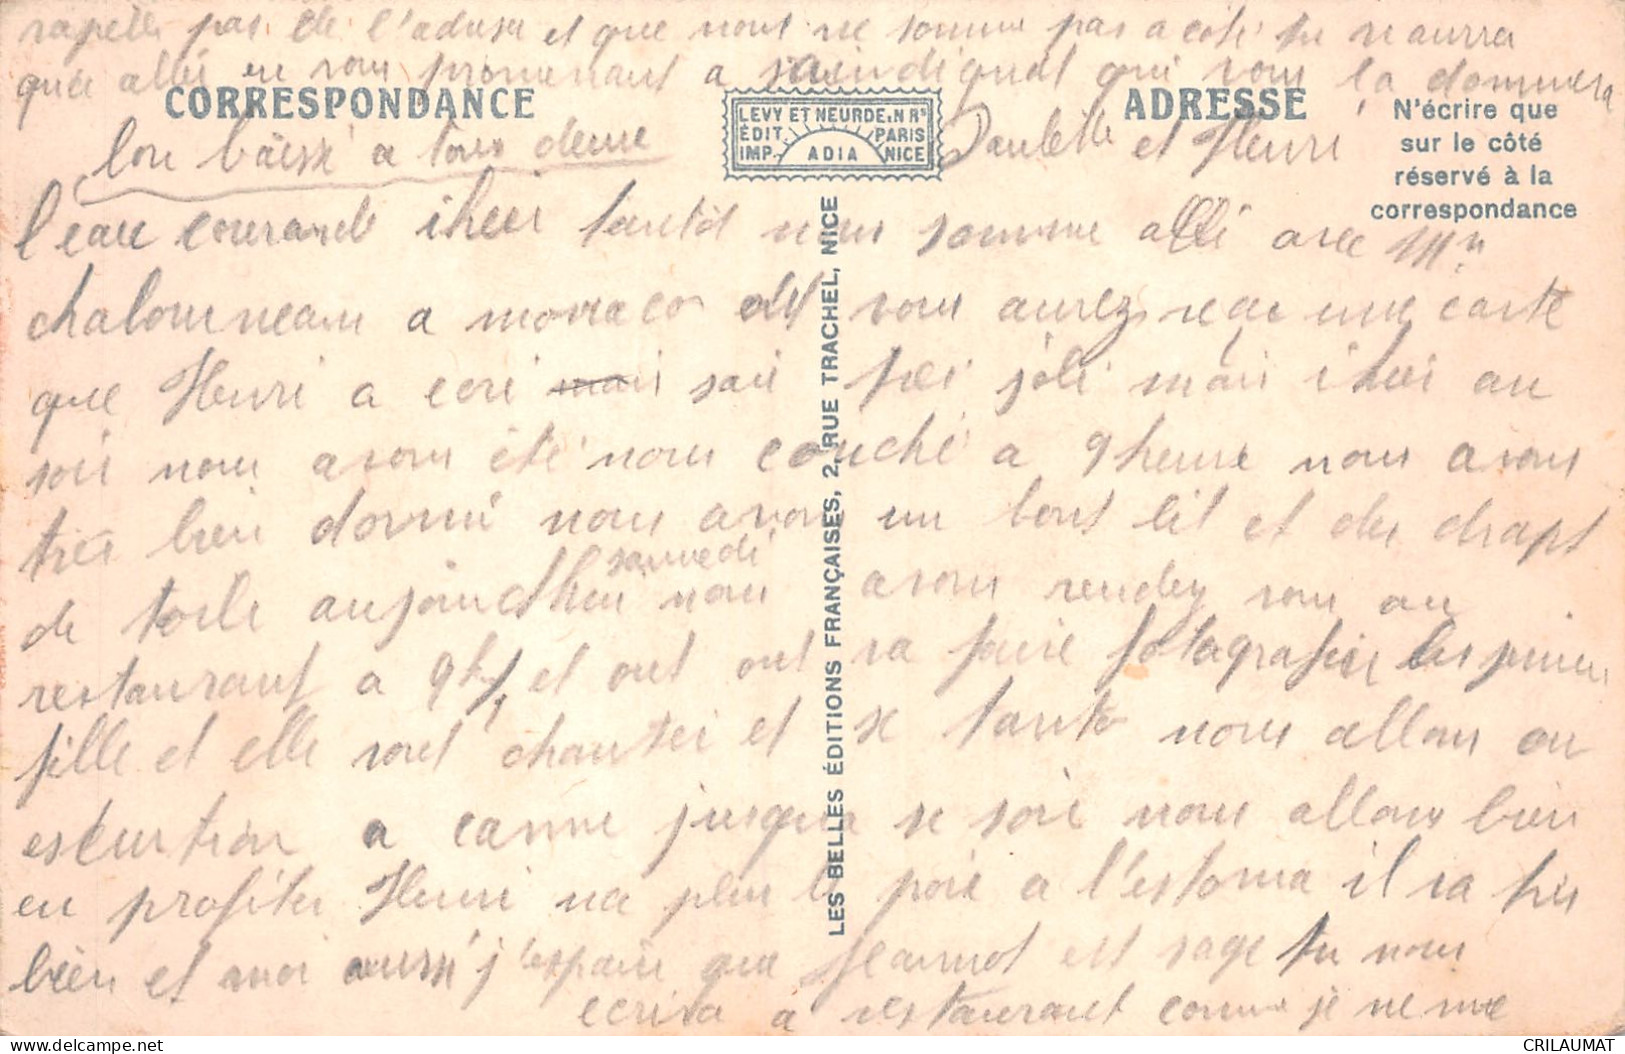 rapelle pas de l'aduse et que nous ne somme pas a coté tu naurra
que allé en vous promenant a qui vous la donnera
CORRESPONDANCE
LEVY ET NEURDEIN Rs
ÉDIT. PARIS
IMP. ADIA NICE
ADRESSE
N'écrire que
sur le côté
réservé à la
correspondance
bon baisse a tous deux
Paulette et Henri
l'eau courande iheir tantot nous somme allé avec Mm
chaloumeau a monaco vous aurez recu une carte
que Henri a ecri sait frei joli mais iheir au
soir nous avons été nous couché a 9 heure nous avons
tres bien dormi nous avons un bont lit et des drapt
de toile aujourd'hui samedi nous avons rendez vous au
restaurant a 9h et ont ont va faire fotografier les
fille et elle vont chanter et se tanto nous allon on
eskurtion a canne jusqua se soir nous allons bien
en profiter Henri na plus le poix a l'estoma il va tres
bien et moi aussi j'espaire que Jeannot est sage tu nous
ecrira a restaurant comme je ne me
LES BELLES ÉDITIONS FRANÇAISES, 2, RUE TRACHEL, NICE
CRILAUMAT